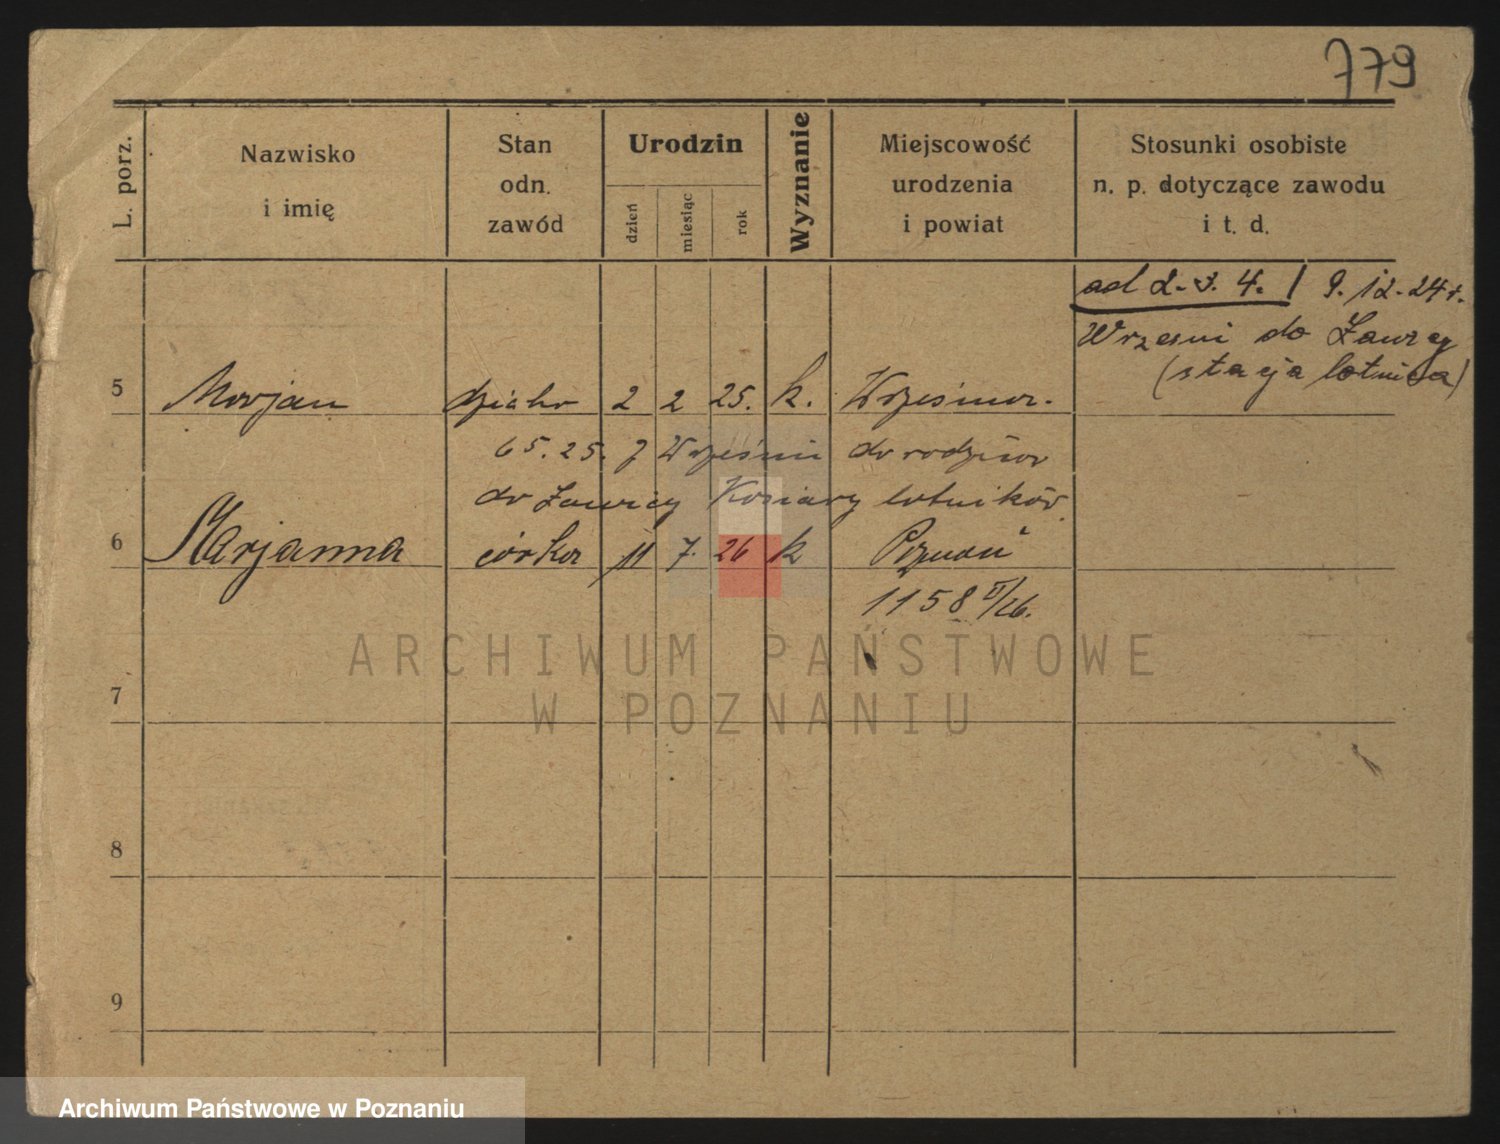 779
L. porz.
Nazwisko
i imię
Stan
odn.
zawód
Urodzin
dzień
miesiąc
rok
Wyznanie
Miejscowość
urodzenia
i powiat
Stosunki osobiste
n. p. dotyczące zawodu
i t. d.
ad 2. 3. 4. / 9. 12. 24 r.
Wrześni do Ławicy
(stacja lotnicza)
5 Marjan 2 2 25. k. Września.
6 5. 25. z Wrześni do rodziców
do Ławicy Koszary lotników
6 Marjanna córka 11 7. 26 k Poznań
1158 II/26.
7
8
9
ARCHIWUM PAŃSTWOWE
W POZNANIU
Archiwum Państwowe w Poznaniu